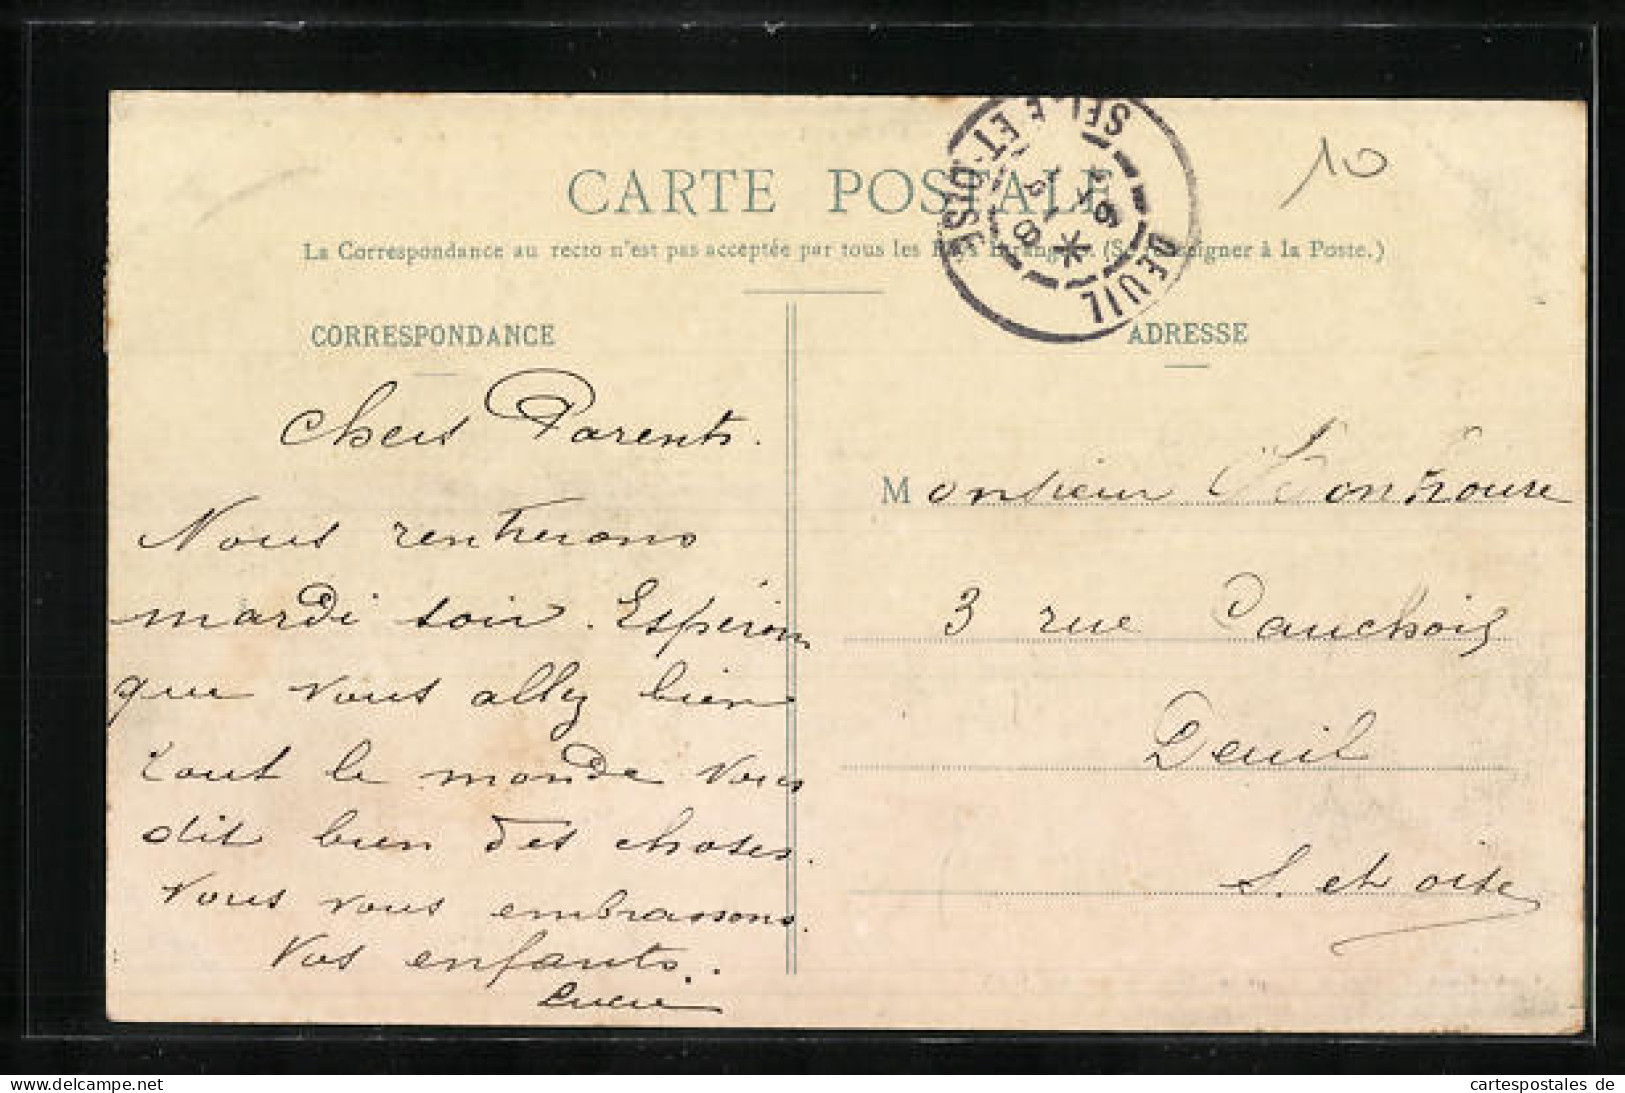 10
CARTE POSTALE
La Correspondance au recto n'est pas acceptée par tous les Pays Etrangers. (Se renseigner à la Poste.)
DEUIL
SEINE-ET-OISE
CORRESPONDANCE
ADRESSE
Chers Parents.
Nous rentrerons
mardi soir. Espérons
que vous allez bien
tout le monde vous
dit bien des choses.
Nous vous embrassons.
Vos enfants.
Lucie
Monsieur Bonhoure
3 rue Cauchois
Deuil
S. et oise
www.cartespostales.eu
cartespostales de